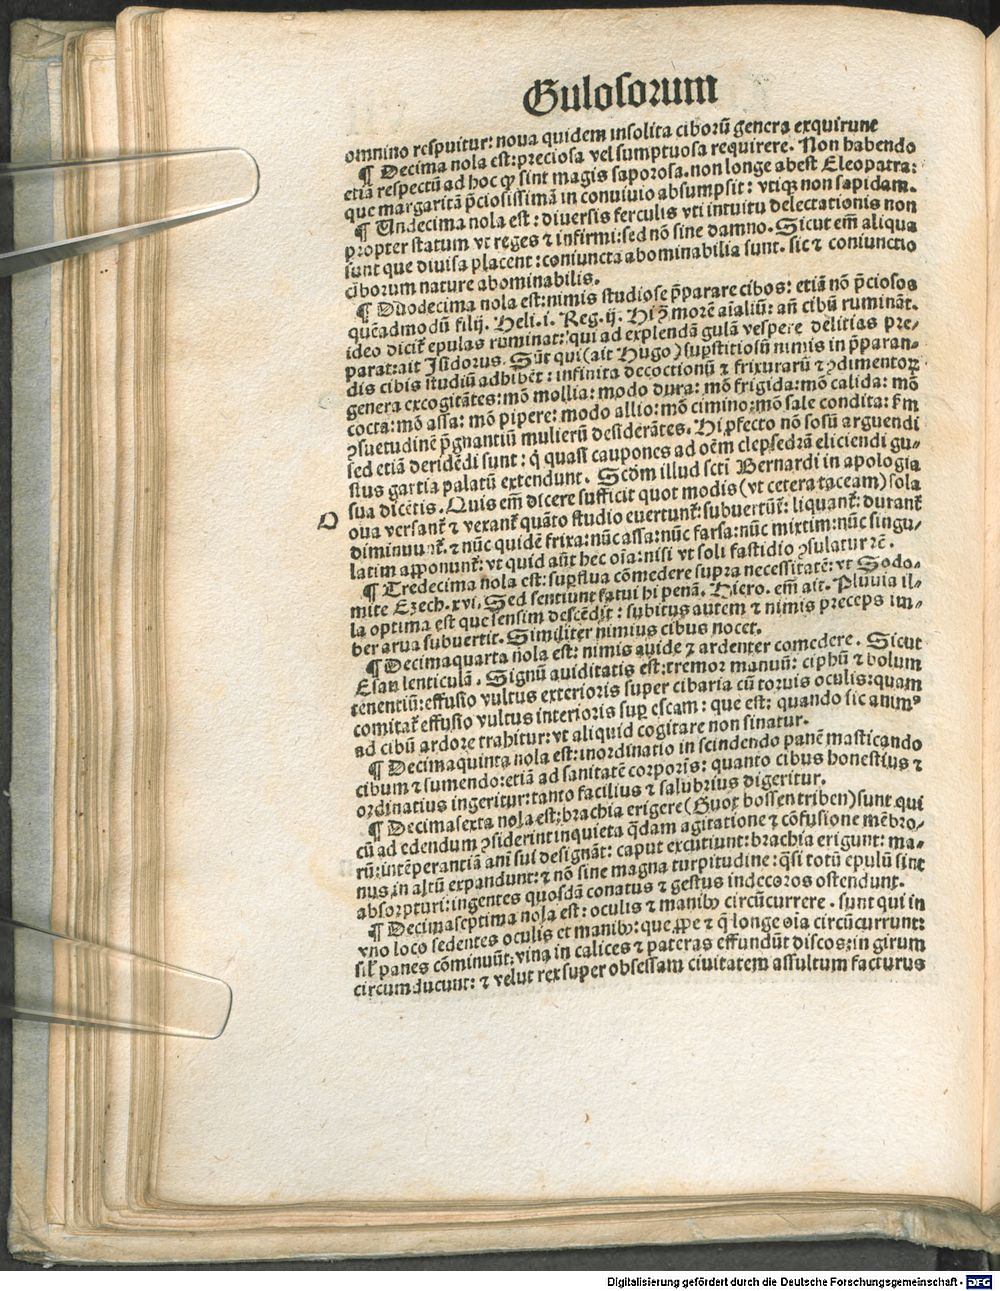 Gulosorum
omnino respuitur: noua quidem insolita ciborū genera exquirunt
¶ Decima nola est: preciosa vel sumptuosa requirere. Non habendo
etiā respectū ad hoc ꝙ sint magis saporosa. non longe abest Cleopatra:
que margaritā p̄ciosissimā in conuiuio absumpsit: vtiqꝫ non sapidam.
¶ Undecima nola est: diuersis ferculis vti intuitu delectationis non
propter statum vt reges ⁊ infirmi: sed nō sine damno. Sicut em̄ aliqua
sunt que diuisa placent: coniuncta abominabilia sunt. sic ⁊ coniunctio
ciborum nature abominabilis.
¶ Duodecima nola est: nimis studiose p̄parare cibos: etiā nō p̄ciosos
quēadmodū filij. Heli. i. Reg. ij. Hi ꝓ morē aīaliū: an̄ cibū rumināt.
ideo dicit̄ epulas ruminat: qui ad explendā gulā vespere delitias pre-
parat: ait Isidorus. Sūt qui (ait Hugo) suꝑstitiosū nimis in p̄paran-
dis cibis studiū adhibēt: infinita decoctionū ⁊ frixurarū ⁊ ꝯdimentoꝝ
genera excogitātes: mō mollia: modo dura: mō frigida: mō calida: mō
cocta: mō assa: mō pipere: modo allio: mō cimino: mō sale condita: k̄m
ꝯsuetudinē p̄gnantiū mulierū desiderātes. Hi ꝓfecto nō solū arguendi
sed etiā deridēdi sunt: q̇ quasi caupones ad oēm clepsedrā eliciendi gu-
stus gartia palatū extendunt. Scḋm illud scti Bernardi in apologia
sua dicētis. Quis em̄ dicere sufficit quot modis (vt cetera taceam) sola
O
oua versant̄ ⁊ vexant̄ quāto studio euertunt̄: subuertūt̄: liquant̄: durant̄
diminuunt̄. ⁊ nūc quidē frixa: nūc assa: nūc farsa: nūc mixtim: nūc singu-
latim apponunt̄: vt quid aūt hec oīa: nisi vt soli fastidio ꝯsulatur ⁊ē.
¶ Tredecima nola est: suꝑflua cōmedere supra necessitatē: vt Sodo-
mite Ezech. xvi. Sed sentiunt fatui hi penā. Hiero. em̄ ait. Pluuia il-
la optima est que sensim descēdit: subitus autem ⁊ nimis preceps im-
ber arua subuertit. Similiter nimius cibus nocet.
¶ Decimaquarta nola est: nimis auide ⁊ ardenter comedere. Sicut
Esau lenticulā. Signū auiditatis est: tremor manuū: ciphū ⁊ bolum
tenentiū: effusio vultus exterioris super cibaria cū toruis oculis: quam
comitat̄ effusio vultus interioris suꝑ escam: que est: quando sic animꝰ
ad cibū ardore trahitur: vt aliquid cogitare non sinatur.
¶ Decimaquinta nola est: inordinatio in scindendo panē masticando
cibum ⁊ sumendo: etiā ad sanitatē corporis: quanto cibus honestius ⁊
ordinatius ingeritur: tanto facilius ⁊ salubrius digeritur.
¶ Decimasexta nola est: brachia erigere (Guor bossen triben) sunt qui
cū ad edendum ꝯsiderint inquieta q̄dam agitatione ⁊ cōfusione mēbro-
rū: intēperantiā ani sui designāt: caput excutiunt: brachia erigunt: ma-
nus in altū expandunt: ⁊ nō sine magna turpitudine: q̄si totū epulū sint
absorpturi: ingentes quosdā conatus ⁊ gestus indecoros ostendunt.
¶ Decimaseptima nola est: oculis ⁊ manibꝰ circūcurrere. sunt qui in
vno loco sedentes oculis et manibꝰ: que ꝓpe ⁊ q̄ longe oīa circūcurrunt:
sil̄ panes cōminuūt: vina in calices ⁊ pateras effundūt discos: in girum
circumducunt: ⁊ velut rex super obsessam ciuitatem assultum facturus
Digitalisierung gefördert durch die Deutsche Forschungsgemeinschaft - DFG